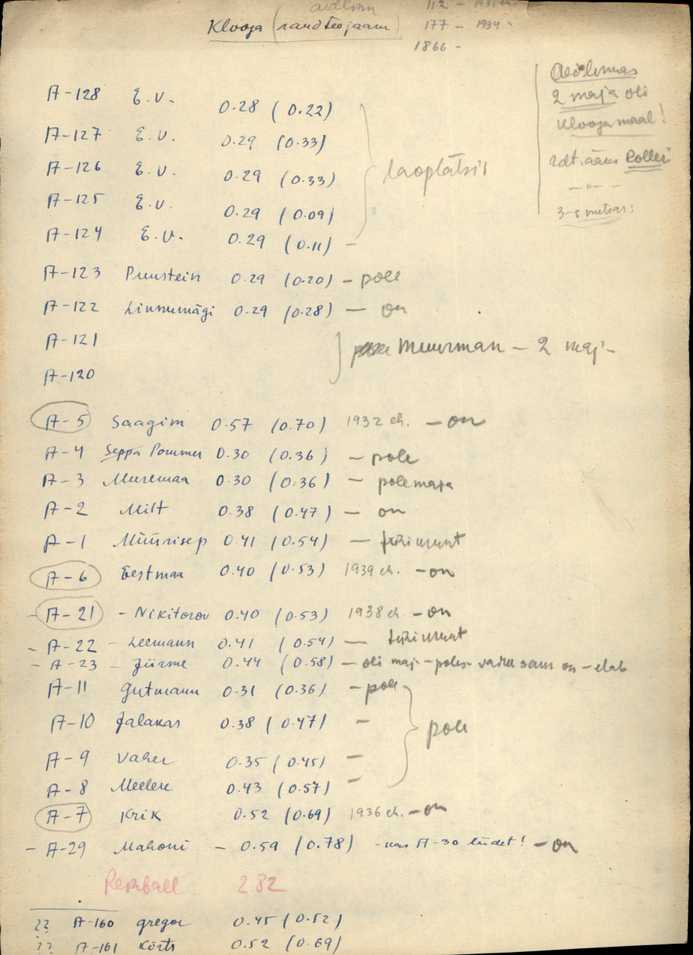 aedlinn
Klooga (randteejaam)
112 -
177 - 1934 -
1866 -
Aedlinnas
2 maja oli
Klooga maal!
3-5 mtr
A-128 E.V. 0.28 (0.22)
A-127 E.V. 0.29 (0.33)
A-126 E.V. 0.29 (0.33)
A-125 E.V. 0.29 (0.09)
A-124 E.V. 0.29 (0.11) -
laoplatsis
A-123 Puustein 0.29 (0.20) - pole
A-122 Linnumägi 0.29 (0.28) - on
A-121
A-120
Muurman - 2 maj-
A-5 Saagim 0.57 (0.70) 1932 eh. - on
A-4 Seppa Pommer 0.30 (0.36) - pole
A-3 Muremaa 0.30 (0.36) - pole maja
A-2 Milt 0.38 (0.47) - on
A-1 Müürisep 0.41 (0.54) -
A-6 Eestmaa 0.40 (0.53) 1939 eh. - on
- A-21 - Nikitorov 0.40 (0.53) 1938 eh - on
- A-22 - Leemann 0.41 (0.54) -
- A-23 - Jürme 0.44 (0.58) - oli maj - pole on - elab
A-11 Gutmann 0.31 (0.36) - pole
A-10 Jalakas 0.38 (0.47) -
pole
A-9 Vaher 0.35 (0.45) -
A-8 Meelere 0.43 (0.57) -
A-7 Krik 0.52 (0.69) 1936 eh. - on
- A-29 Mahoni - 0.59 (0.78) - A-30 - on
282
?? A-160 Gregor 0.45 (0.52)
?? A-161 Kõrts 0.52 (0.69)